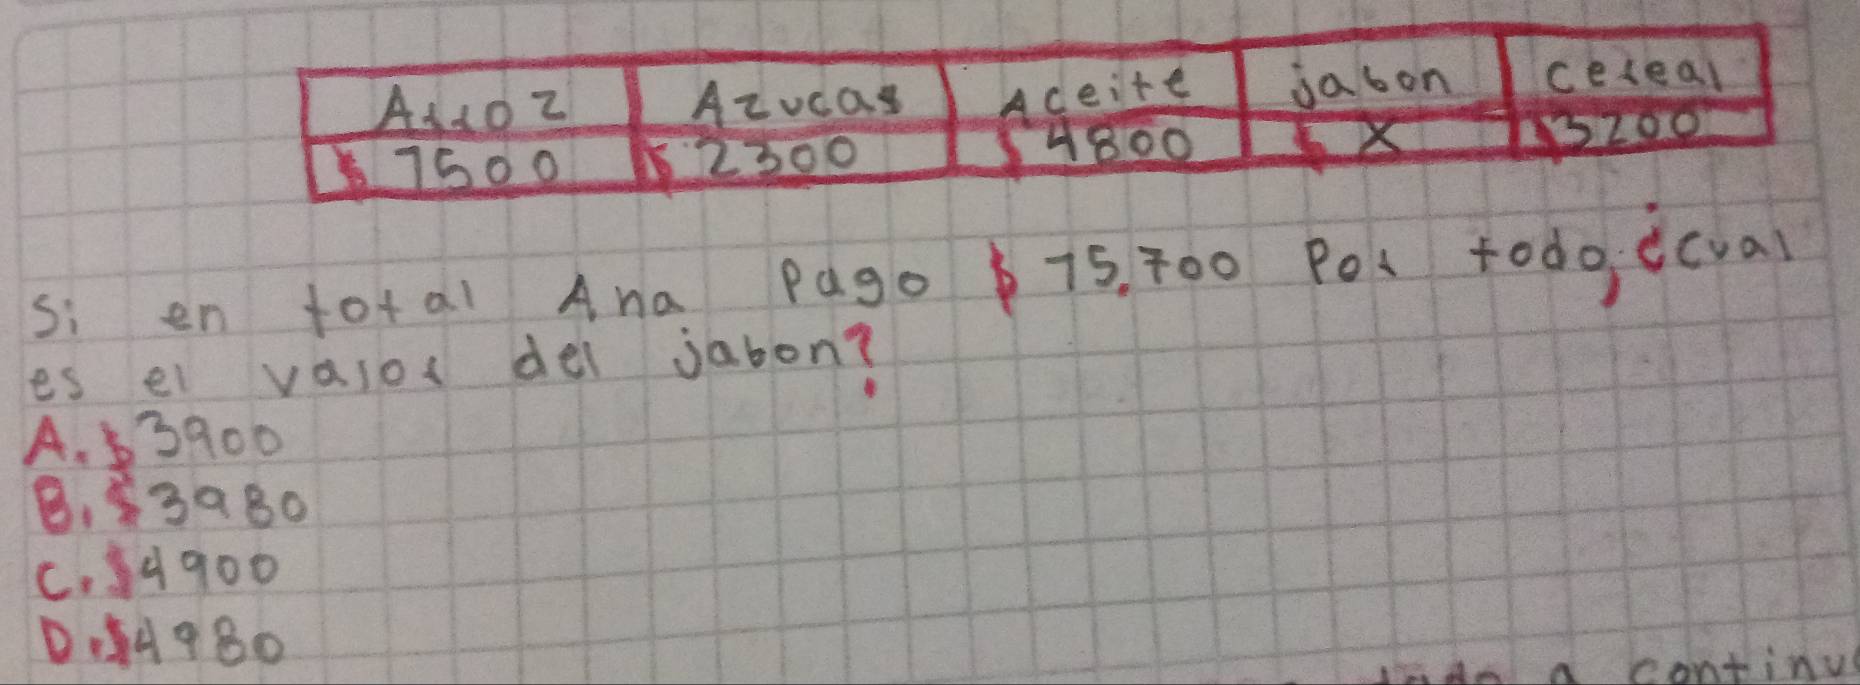 Arroz Azucar Aceite jabon cereal
$ 1500 $ 2300 $ 4800 $ X $ 3200
Si en total Ana Pago $ 15.700 Por todo, ¿cual
es el valor del jabon?
A. $ 3900
B. $ 3980
C. $ 4900
D. $ 4980
a continu